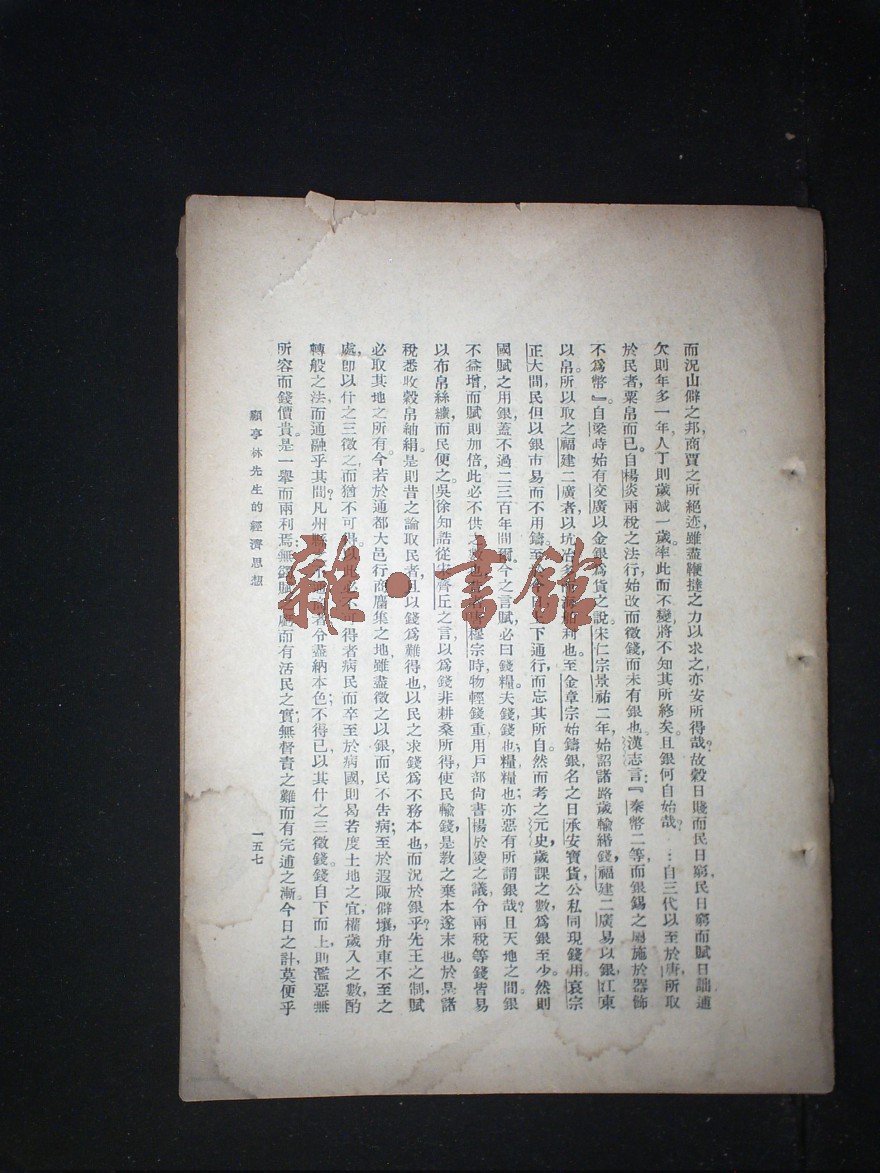 而況山僻之邦，商賈之所絕迹，雖盡鞭撻之力以求之，亦安所得哉？故穀日賤而民日窮，民日窮而賦日詘逋
欠則年多一年，人丁則歲減一歲。率此而不變，將不知其所終矣。且銀何自始哉？…自三代以至於唐，所取
於民者，粟帛而已。自楊炎兩稅之法行，始改而徵錢，而未有銀也。漢志言：『秦幣二等，而銀錫之屬施於器飾，
不爲幣。』自梁時始有交廣以金銀爲貨之說。宋仁宗景祐二年，始詔諸路歲輸緡錢，福建二廣易以銀，江東
以帛。所以取之福建二廣者，以坑冶多而海舶利也。至金章宗始鑄銀，名之曰承安寶貨，公私同現錢用。哀宗
正大間，民但以銀市易而不用鑄。至於今日上下通行而忘其所自。然而考之元史，歲課之數，爲銀至少。然則
國賦之用銀，蓋不過二三百年間爾。今之言賦，必曰錢糧。夫錢，錢也；糧，糧也；亦惡有所謂銀哉？且天地之間，銀
不益增而賦則加倍，此必不供之數也。穆宗時，物輕錢重，用戶部尙書楊於陵之議，令兩稅等錢皆易
以布帛絲纊，而民便之。吳徐知誥從宋齊丘之言，以爲錢非耕桑所得，使民輸錢，是敎之棄本逐末也。於是諸
稅悉收穀帛紬絹。是則昔之論取民者，且以錢爲難得也，以民之求錢爲不務本也，而況於銀乎？先王之制賦，
必取其地之所有。今若於通都大邑行商麕集之地，雖盡徵之以銀，而民不告病；至於遐陬僻壤，舟車不至之
處，卽以什之三徵之，而猶不可得。以此必不可得者病民，而卒至於病國，則曷若度土地之宜，權歲入之數，酌
轉般之法，而通融乎其間？凡州縣之不通商者，令盡納本色；不得已，以其什之三徵錢。錢自下而上，則濫惡無
所容而錢價貴。是一舉而兩利焉：無蠲賦之虧而有活民之實；無督責之難而有完逋之漸。今日之計，莫便乎
顧亭林先生的經濟思想
一五七
雜·書館